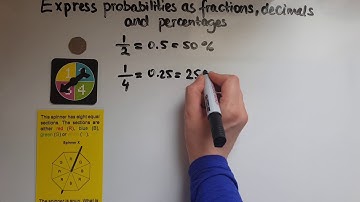 Express probabilities as fractions, decimals
and percentages
1/2 = 0.5 = 50 %
1/4 = 0.25 = 25
1
3
4
This spinner has eight equal
sections. The sections are
either red (R), blue (B),
green (G) or
Spinner X
The spinner is spun. What is